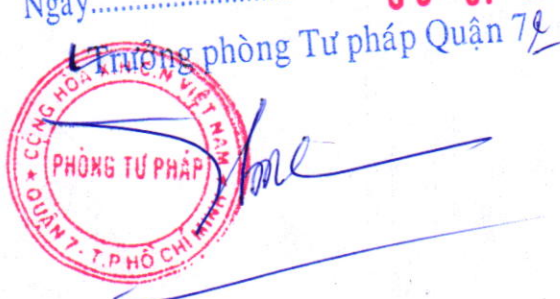 Ngày..........................
Trưởng phòng Tư pháp Quận 7
CỘNG HÒA X.H.C.N VIỆT NAM
PHÒNG TƯ PHÁP
★ QUẬN 7 - T.P HỒ CHÍ MINH ★